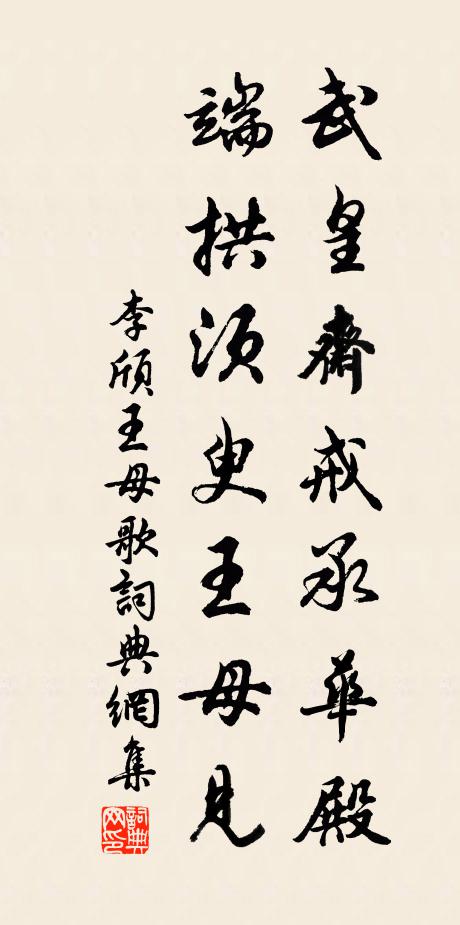 武皇齋戒承華殿
端拱須臾王母見
李頎王母歌詞典網集
詞典网印